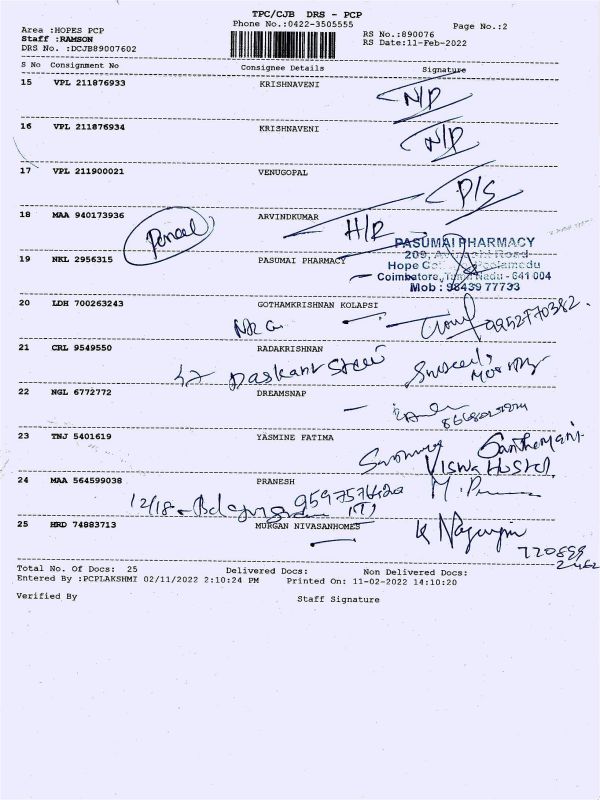 TPC/CJB DRS - PCP
Area :HOPES PCP Phone No.:0422-3505555 Page No.:2
Staff :RAMSON RS No.:890076
DRS No. :DCJB89007602 RS Date:11-Feb-2022
S No Consignment No Consignee Details Signature
15 VPL 211876933 KRISHNAVENI
N/D
16 VPL 211876934 KRISHNAVENI
N/D
17 VPL 211900021 VENUGOPAL
D/S
18 MAA 940173936 ARVINDKUMAR
H/D
PASUMAI PHARMACY
209, Road
19 NKL 2956315 PASUMAI PHARMACY
Hope
Coimbatore, Tamil Nadu - 641 004
Mob : 98439 77733
20 LDH 700263243 GOTHAMKRISHNAN KOLAPSI
21 CRL 9549550 RADAKRISHNAN
22 NGL 6772772 DREAMSNAP
23 TNJ 5401619 YASMINE FATIMA
Santhamani
Viswa Hostel
24 MAA 564599038 PRANESH
12/18
25 HRD 74883713 MURGAN NIVASANHOMES
Total No. Of Docs: 25 Delivered Docs: Non Delivered Docs:
Entered By :PCPLAKSHMI 02/11/2022 2:10:24 PM Printed On: 11-02-2022 14:10:20
Verified By Staff Signature